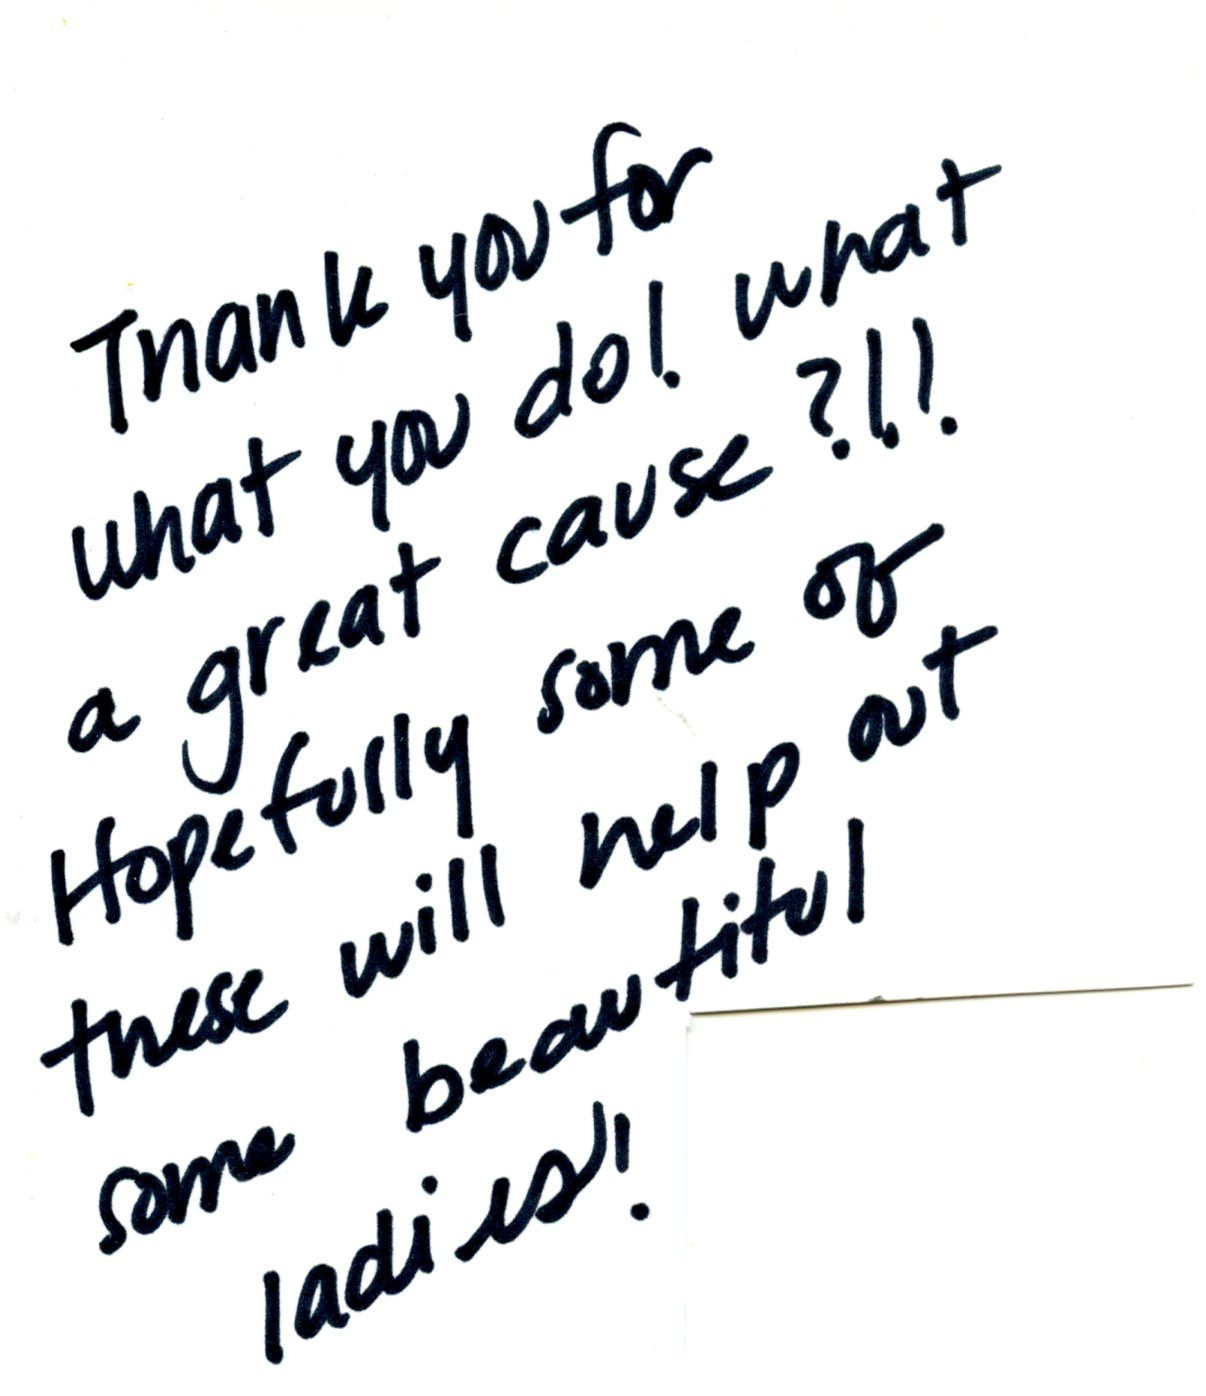 Thank you for
what you do! what
a great cause?!!
Hopefully some of
these will help out
some beautiful
ladies!